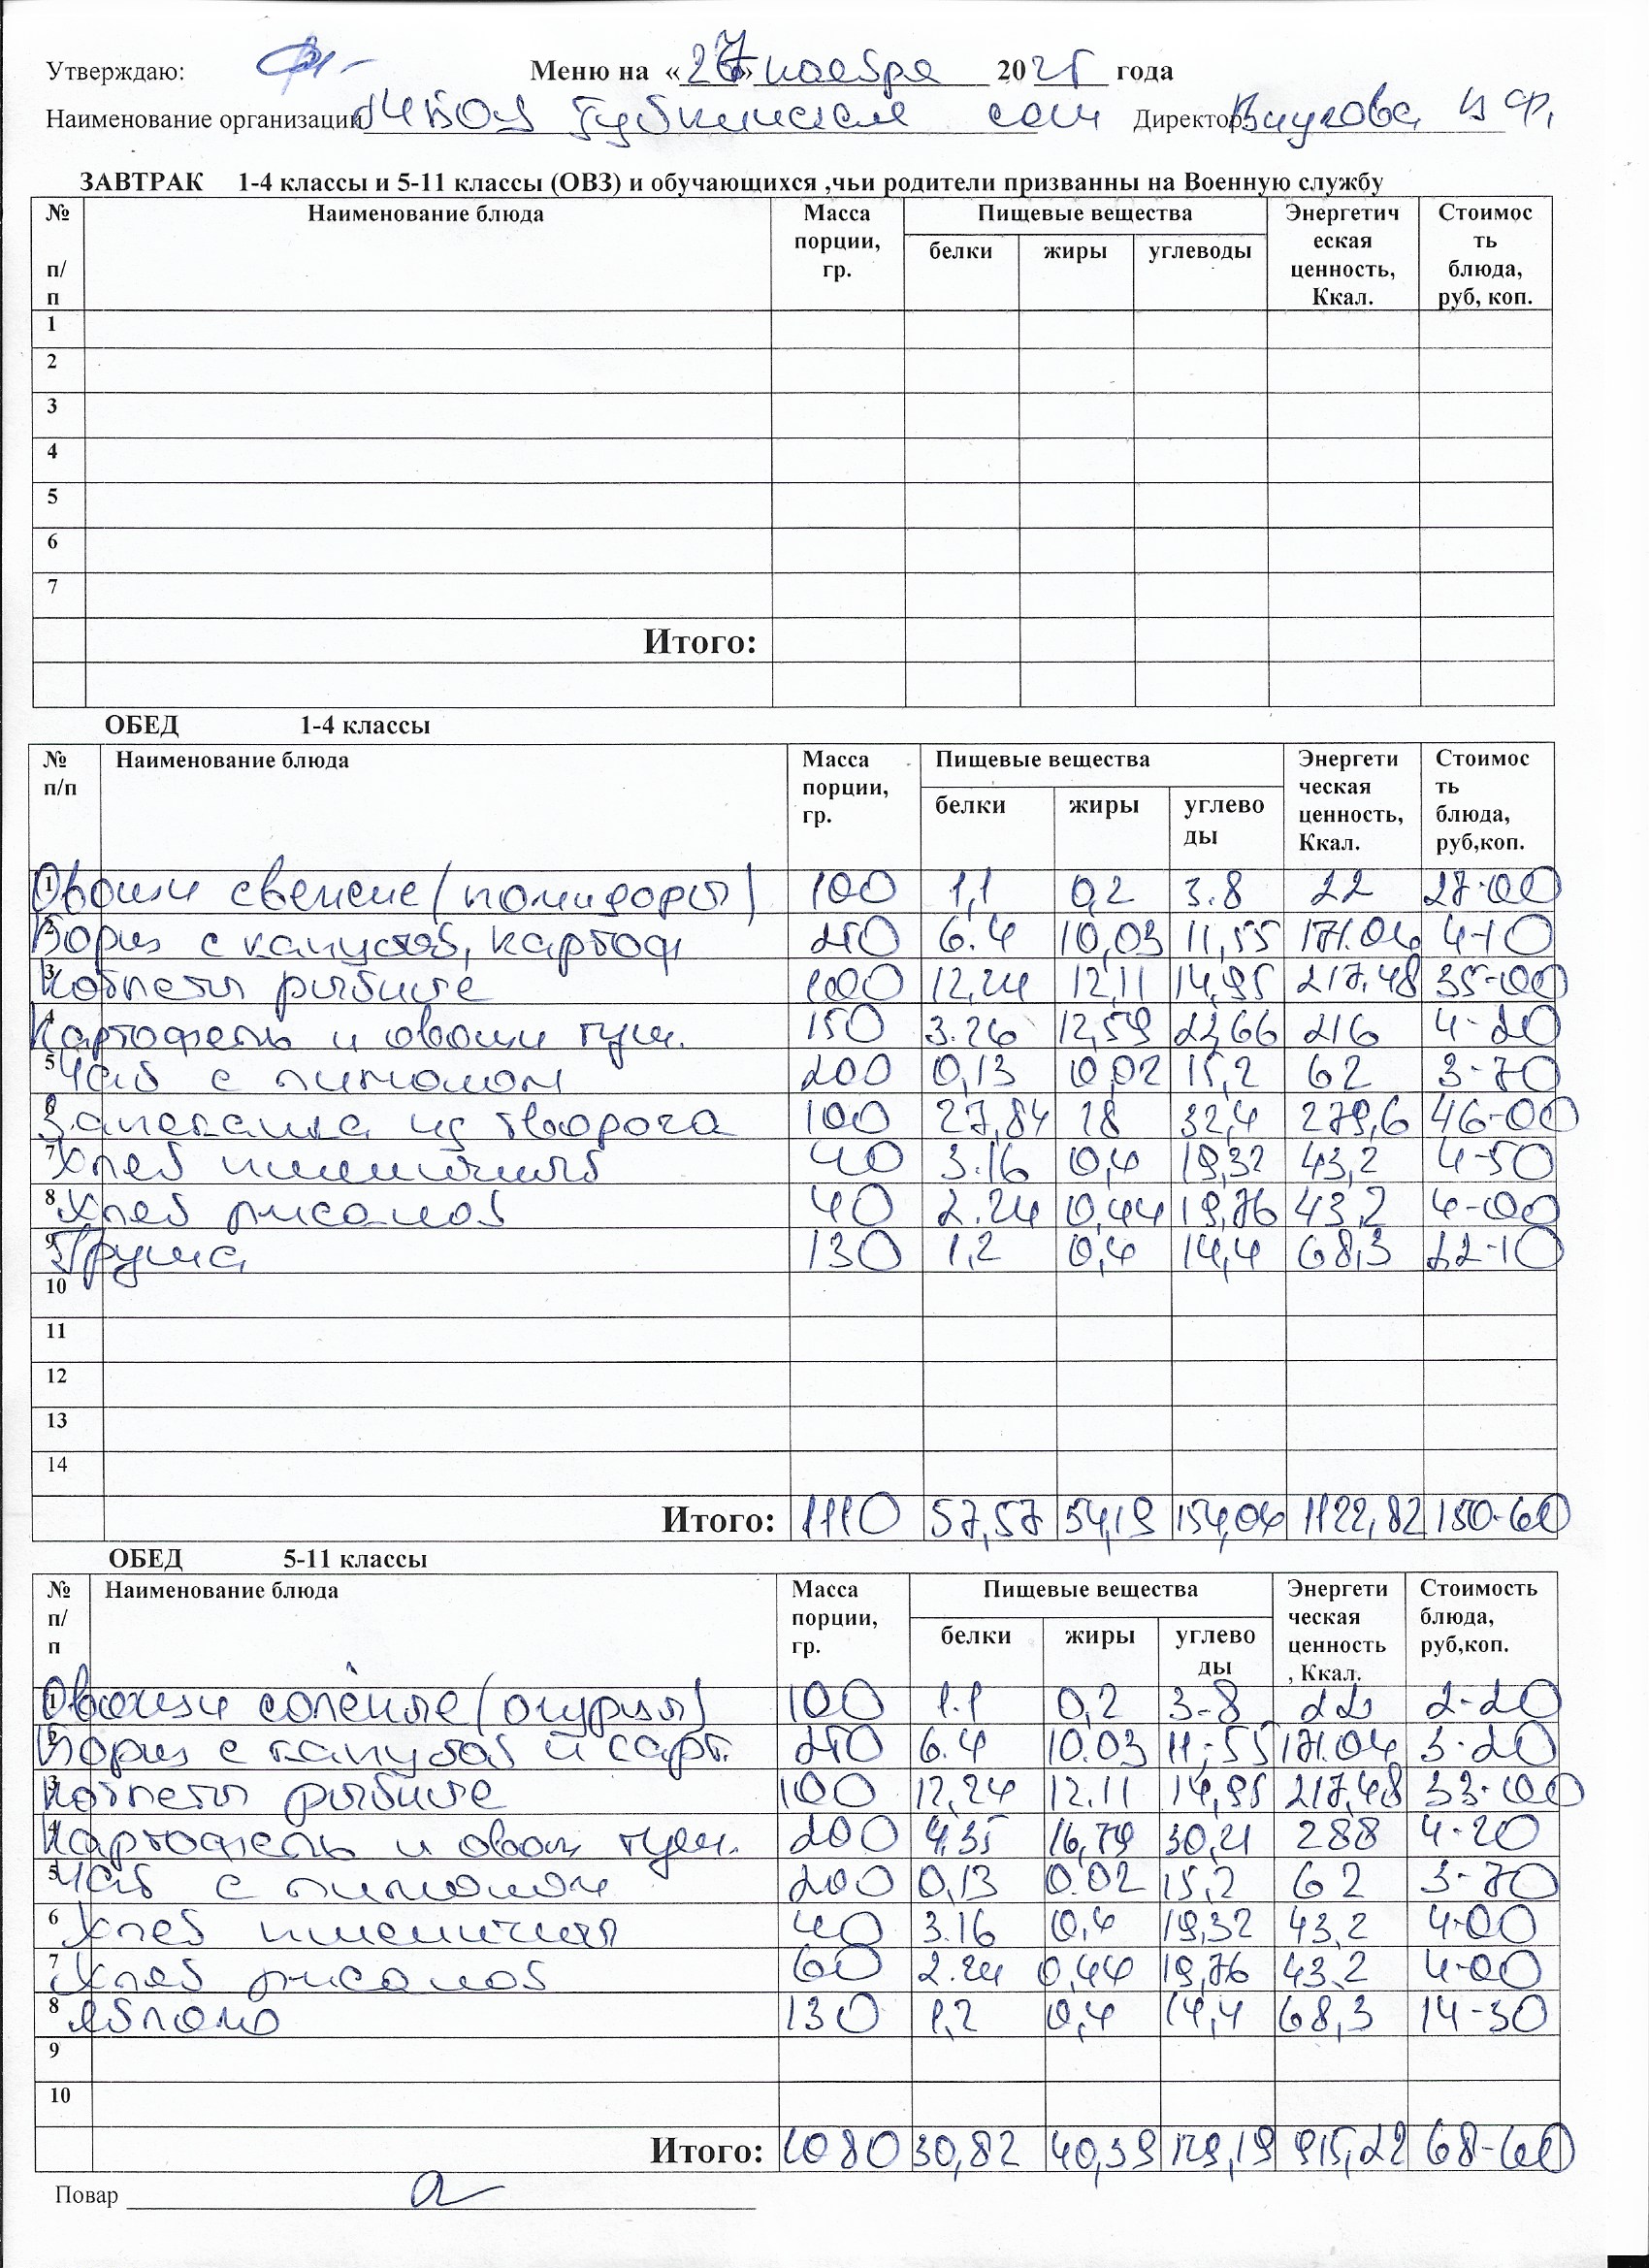 Утверждаю: Меню на «27» ноября 2025 года
Наименование организации МБОУ Губкинская сош Директор И Ф.
ЗАВТРАК 1-4 классы и 5-11 классы (ОВЗ) и обучающихся ,чьи родители призванны на Военную службу
№ п/п Наименование блюда Масса порции, гр. Пищевые вещества Энергетическая ценность, Ккал. Стоимость блюда, руб, коп.
белки жиры углеводы
1
2
3
4
5
6
7
Итого:
ОБЕД 1-4 классы
№ п/п Наименование блюда Масса порции, гр. Пищевые вещества Энергетическая ценность, Ккал. Стоимость блюда, руб,коп.
белки жиры углеводы
1 Овощи свежие (помидоры) 100 1,1 0,2 3.8 22 27-00
2 Борщ с капустой, картоф 250 6.4 10,03 11,55 171.04 4-10
3 Котлеты рыбные 100 12,24 12,11 14,95 217,48 35-00
4 Картофель и овощи туш. 150 3.26 12,59 22,66 216 4-20
5 Чай с лимоном 200 0,13 0,02 15,2 62 3-70
6 Запеканка из творога 100 27,84 18 32,4 279,6 46-00
7 Хлеб пшеничный 40 3.16 0,4 19,32 43,2 4-50
8 Хлеб ржаной 40 2.24 0,44 19,76 43,2 4-00
9 Груша 130 1,2 0,4 14,4 68,3 22-10
10
11
12
13
14
Итого: 1110 57,57 54,19 154,04 1122,82 150-60
ОБЕД 5-11 классы
№ п/п Наименование блюда Масса порции, гр. Пищевые вещества Энергетическая ценность, Ккал. Стоимость блюда, руб,коп.
белки жиры углеводы
1 Овощи солёные (огурцы) 100 1.1 0,2 3-8 22 2-20
2 Борщ с капустой и карт. 250 6.4 10.03 11,55 171.04 3-20
3 Котлеты рыбные 100 12,24 12.11 14,95 217,48 33-00
4 Картофель и овощ туш. 200 4,35 16,79 30,21 288 4-20
5 Чай с лимоном 200 0,13 0.02 15,2 62 3-70
6 Хлеб пшеничный 40 3.16 0,4 19,32 43,2 4-00
7 Хлеб ржаной 60 2.24 0,44 19,76 43.2 4-00
8 яблоко 130 1,2 0,4 14,4 68,3 14-30
9
10
Итого: 1080 30,82 40,39 129,19 915,22 68-60
Повар